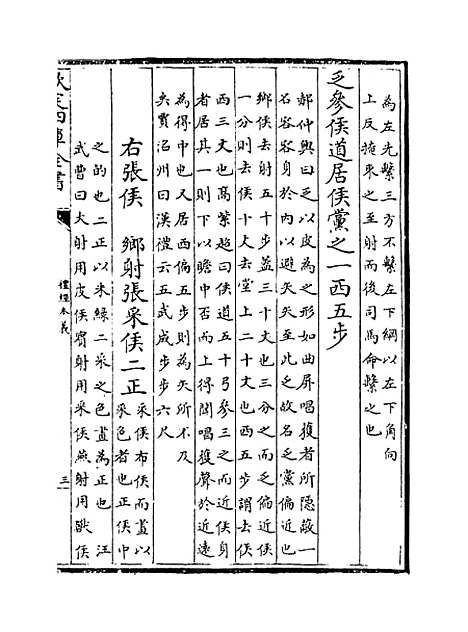 為左先繫三方不繫左下綱以左下角向
上反掩束之至射而後司馬命繫之也
乏參侯道居侯黨之一西五步
郝仲輿曰乏以皮為之形如曲屏唱獲者所隱蔽一
名容容身於内以避矢矢至此乏故名乏黨偏近也
鄉侯去射五十步葢三十丈也三分之而乏偏近侯
一分則去侯十丈去堂上二十丈也西五步謂去侯
西三丈也髙紫超曰侯道五十弓參三之而近侯身
者居其一則下以瞻中否而上得聞唱獲聲於近遠
為得中也又居西偏五步則為矢所不及
矣賈洺州曰漢禮云五武成步步六尺
右張侯　鄉射張采侯二正
采侯布侯而畫以
采色者也正侯中
之的也二正以朱緑二采之色畫為正也　汪
武曹曰大射用皮侯賔射用采侯燕射用獸侯
欽定四庫全書
禮經本義
三